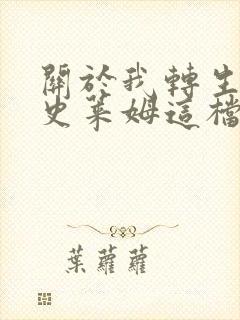 關於我轉生
史萊姆這檔
葉蘿蘿